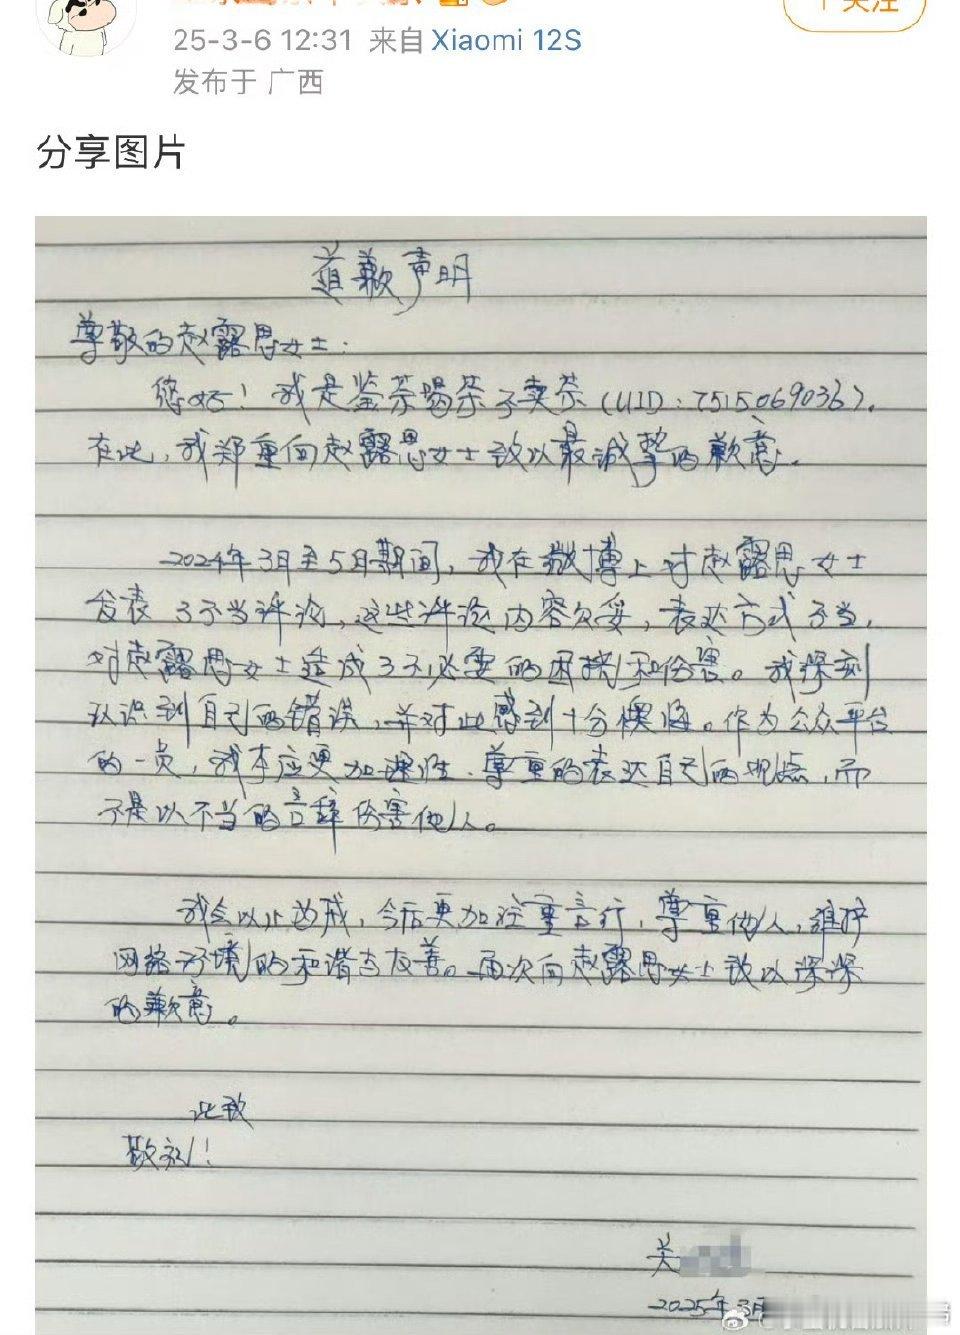 关注
25-3-6 12:31 来自 Xiaomi 12S
发布于 广西
分享图片
道歉声明
尊敬的赵露思女士：
您好！我是鉴茶喝茶不卖茶（UID：7515069036）.
在此，我郑重向赵露思女士致以最诚挚的歉意.
2024年3月至5月期间，我在微博上对赵露思女士
发表了不当评论，这些评论内容欠妥，表达方式不当，
对赵露思女士造成了不必要的困扰和伤害。我深刻
认识到自己的错误，并对此感到十分懊悔。作为公众平台
的一员，我本应更加理性、尊重的表达自己的观点，而
不是以不当的言辞伤害他人。
我会以此为戒，今后更加注重言行，尊重他人，维护
网络环境的和谐与友善。再次向赵露思女士致以深深
的歉意。
此致
敬礼！
关
2025年3月